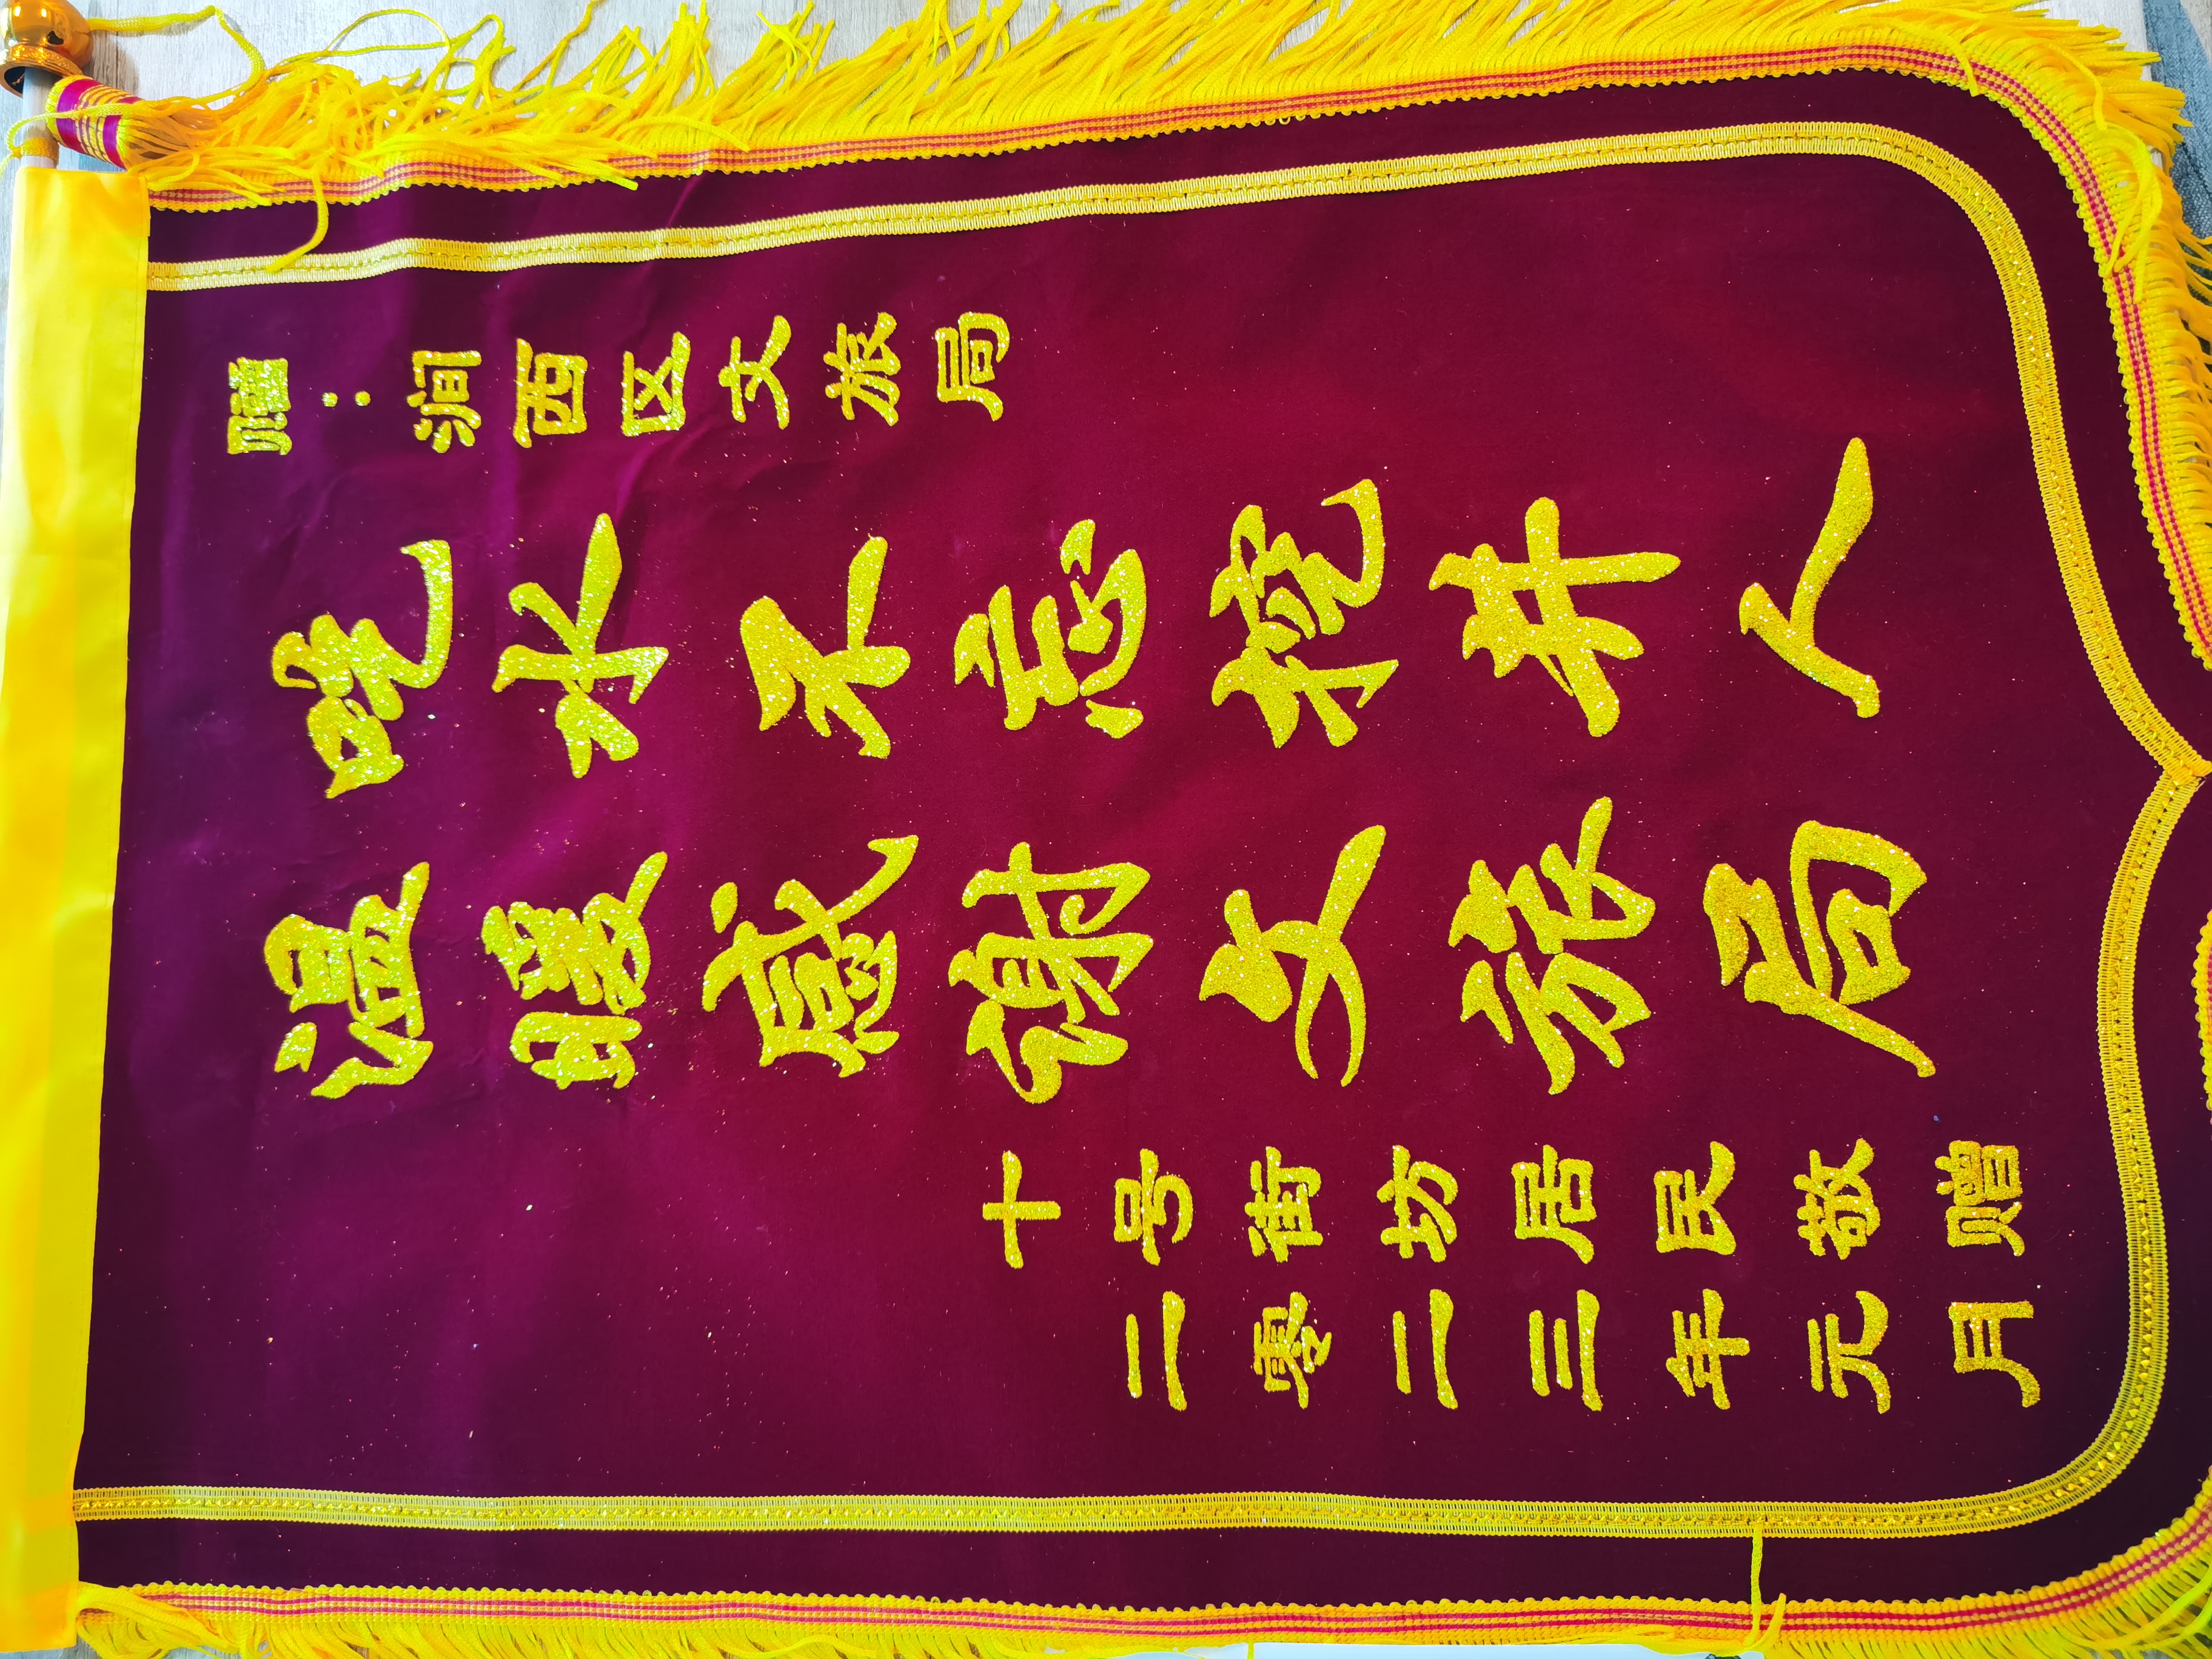 赠：涧西区文旅局
吃水不忘挖井人
温暖感谢文旅局
十号街坊居民敬赠
二零二三年元月